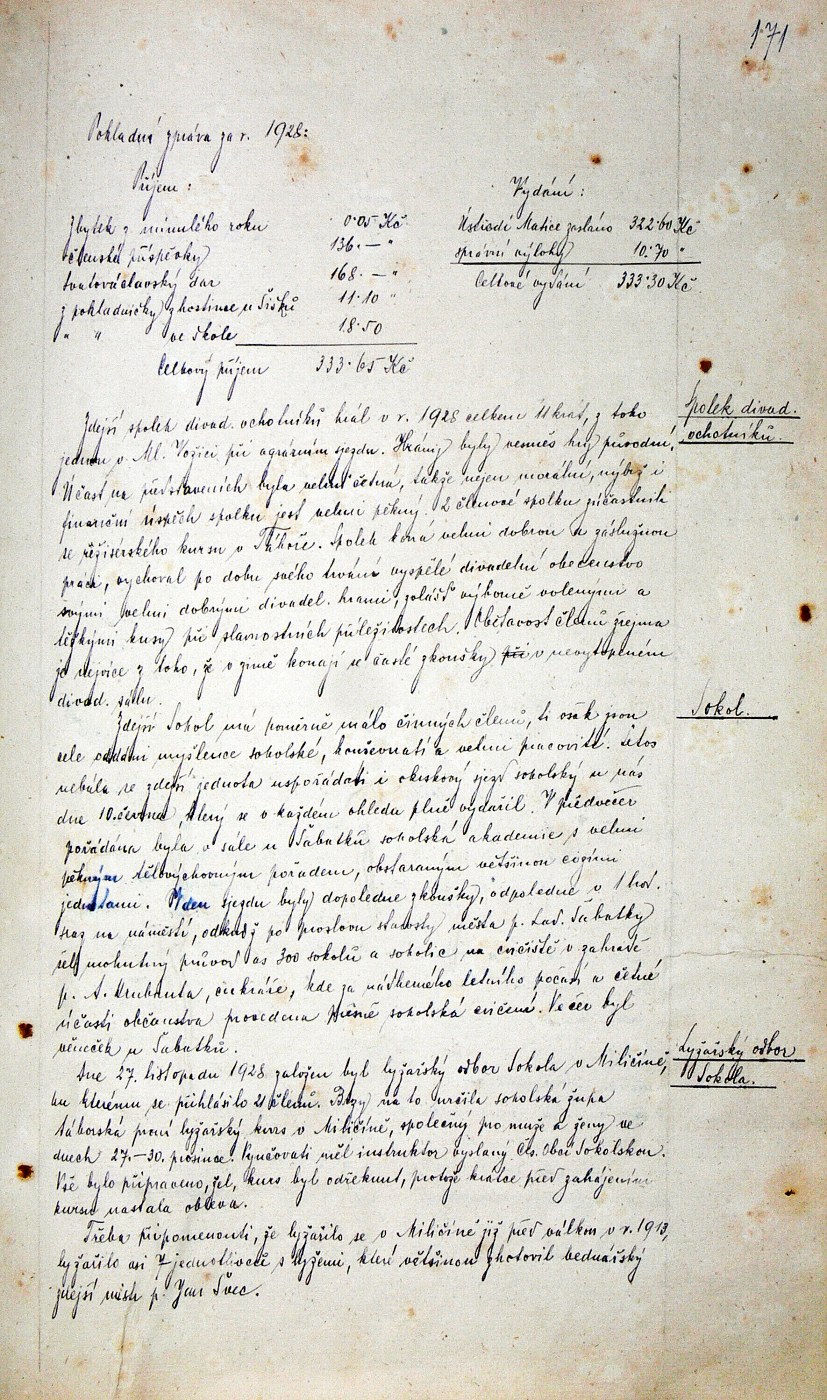 171
Pokladná zpráva za r. 1928:
Příjem:
Zbytek z minulého roku 0·05 Kč
členské příspěvky 136·— "
svatováclavský dar 168·— "
z pokladničky z hostince u Šišků 11·10 "
" " ve škole 18·50
Celkový příjem 333·65 Kč
Vydání:
Ústřední Matice zasláno 322·60 Kč
správní výlohy 10·70 "
Celkové vydání 333·30 Kč
Spolek divad.
ochotníků.
Zdejší spolek divad. ochotníků hrál v r. 1928 celkem 11 krát, z toho
jednou v Ml. Vožici při agrárním sjezdu. Hrány byly vesměs hry původní.
Účast na představeních byla velmi četná, takže nejen morální, nýbrž i
finanční úspěch spolku jest velmi pěkný. 2 členové spolku zúčastnili
se režisérského kursu v Táboře. Spolek koná velmi dobrou a záslužnou
práci, vychoval po dobu svého trvání vyspělé divadelní obecenstvo
svými velmi dobrými divadel. hrami, zvlášť výborně volenými a
těžkými kusy při slavnostních příležitostech. Obětavost členů zřejma
je nejvíce z toho, že v zimě konají se časté zkoušky při v nevytopeném
divad. sálu.
Sokol.
Zdejší Sokol má poměrně málo činných členů, ti však jsou
cele oddáni myšlence sokolské, houževnatí a velmi pracovití. Letos
nebála se zdejší jednota uspořádati i okrskový sjezd sokolský u nás
dne 10. června, který se v každém ohledu plně vydařil. V předvečer
pořádána byla v sále u Šabatků sokolská akademie s velmi
pěkným tělovýchovným pořadem, obstaraným většinou cizími
jednotami. V den sjezdu byly dopoledne zkoušky, odpoledne v 1 hod.
sraz na náměstí, odkudž po proslovu starosty města p. Lad. Šabatky
šel mohutný průvod as 300 sokolů a sokolic na cvičiště v zahradě
p. A. cukráře, kde za nádherného letního počasí a četné
účasti občanstva provedena sokolská cvičení. Večer byl
věneček u Šabatků.
Lyžařský odbor
Sokola.
Dne 27. listopadu 1928 založen byl lyžařský odbor Sokola v Miličíně,
ku kterému se přihlásilo 21 členů. Brzy na to určila sokolská župa
táborská první lyžařský kurs v Miličíně, společný pro muže a ženy ve
dnech 27.–30. prosince. Vyučovati měl instruktor vyslaný Čs. Obcí Sokolskou.
Vše bylo připraveno, žel, kurs byl odřeknut, protože krátce před zahájením
kursu nastala obleva.
Třeba připomenouti, že lyžařilo se v Miličíně již před válkou v r. 1913,
lyžařilo asi 7 jednotlivců s lyžemi, které většinou zhotovil bednářský
zdejší mistr p. Jan Švec.